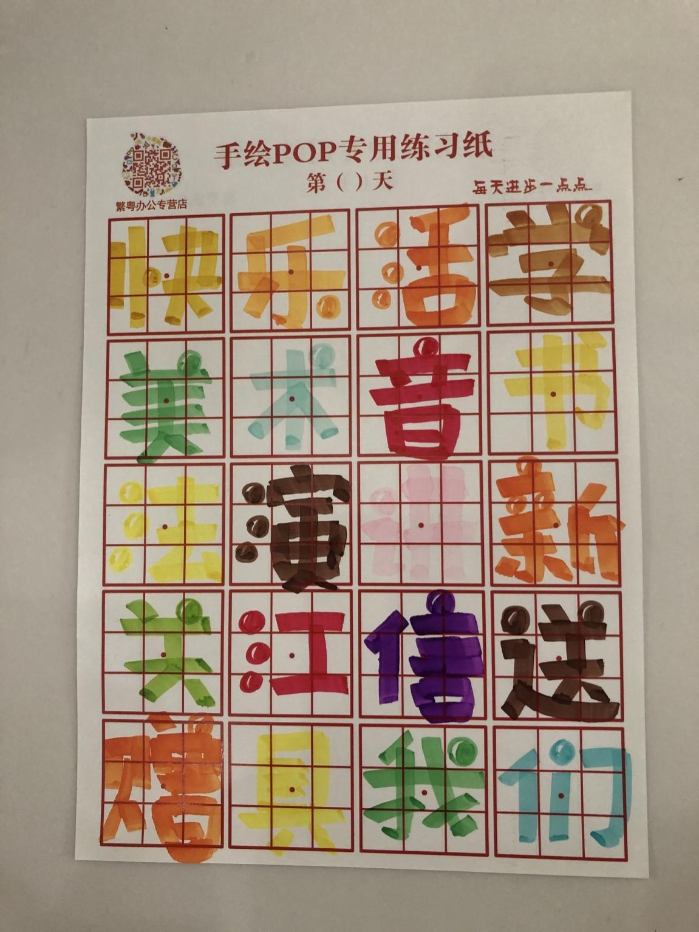 手绘POP专用练习纸
第（ ）天
每天进步一点点
繁粤办公专营店
快乐活学
美术音书
法演讲新
关江信送
赠具我们